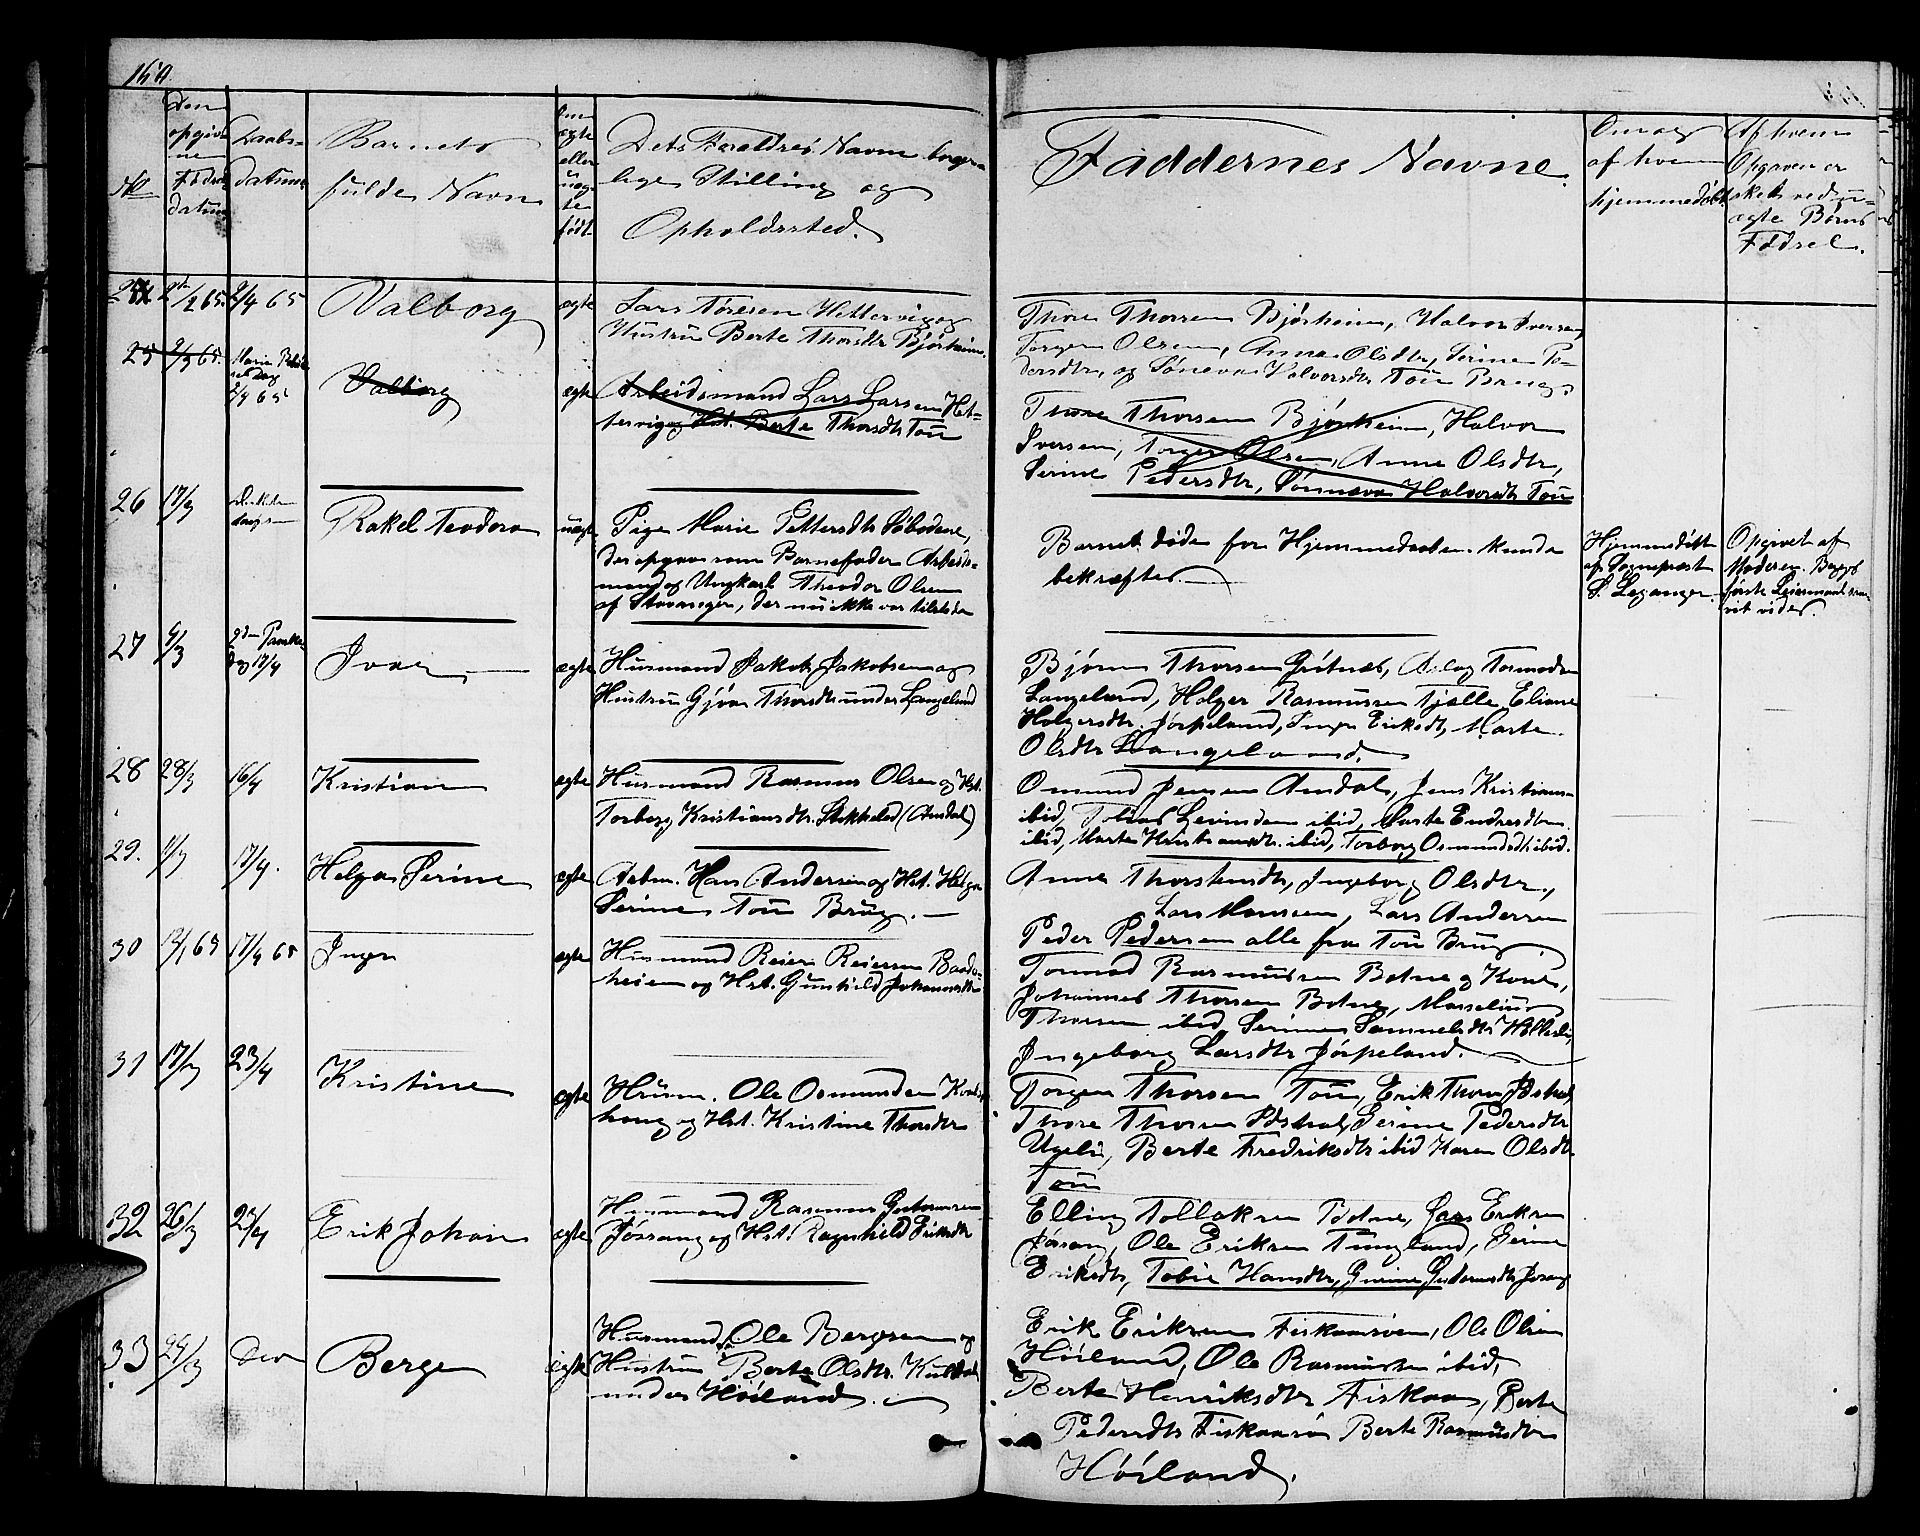 No
Den opgivne Fødselsdatum
Daabsdatum
Barnets
fulde Navn
Om ægte eller uægte født
Dets Forældres Navne borger-
lige Stilling og
Opholdssted.
Faddernes Navne.
Om og af hvem hjemmedøbt
Af hvem Opgaven er sket ved uægte Børns Fødsel.
2/2 65. 2/4 65 Valborg ægte
Lars Hettervig og
Hustru Berte Thorsdtr Bjørheim.
Thore Thorsen Bjørheim, Halvor Iversen,
Torger Olsen, Anne Olsdtr, Serine Pe-
dersdtr, og Søneva Halvorsdtr Tou Brug.
25 2/2 65. 2/4 65 Valborg ægte
Arbeidsmand Lars Larsen Het-
tervig og Hst. Berte Thorsdtr Tou
Thore Thorsen Bjørheim, Halvor
Iversen, Torger Olsen, Anne Olsdtr,
Serine Pedersdtr, Sønneva Halvorsdtr Tou
26 17/3 Rakel Teodora uægte
Pige Marie Pettersdtr
der opgav som Barnefader Arbeids-
mand og Ungkarl Theodor Olsen
af Stavanger, der nu ikke var tilstede
Barnet døde før Hjemmedaaben kunde
bekræftes.
Hjemmedøbt
af Sognepræst
S. Leganger.
Opgivet af
Moderen. Begges
første Leiermaal saa-
vit vides.
27 9/3 2den Paaskedag 17/4 Ivar ægte
Husmand Jakob Jakobsen og
Hustru Gjøa Thorsdtr under Langeland
Bjørn Thorsen Grøtnæs, Aslag Tormodsen
Langeland, Holger Rasmussen Tjølle, Eliane
Holgersdtr. Jørpeland, Inger Eriksdtr, Marte
Olsdtr Langeland.
28 28/3 16/4 Kristian ægte
Husmand Rasmus Olsen og Hst.
Torborg Kristiansdtr. (Amdal)
Omund Jensen Amdal, Jens Kristians-
ibid, Tobias ibid, Marte Endresdtr.
ibid, Marte Kristiansdtr. ibid, Torborg Osmundsdtr ibid.
29. 11/3 17/4. Helga Serine ægte
Arbm. Hans Andersen og Hst. Helga
Serine Tou Brug.
Anne Thorstensdtr, Ingeborg Olsdtr.,
Lars Hansen, Lars Andersen
Peder Pedersen alle fra Tou Brug
30 65 17/4 65 Inger ægte
Husmand Reier Reiersen
og Hst. Gunhild Johannesdtr
Tormod Rasmussen Botne og Kone,
Johannes Thorsen Botne,
Thorsen ibid, Serine Samuelsdtr
Ingeborg Larsdtr Jørpeland.
31 17/3 23/4 Kristine ægte
Husm. Ole Osmundsen
og Hst. Kristine Thorsdtr
Torger Thorsen Tou, Erik Thorsen Idshal,
Thore Thorsen Idshal, Serine Pedersdtr
Berte Fredriksdtr ibid Karen Olsdtr.
Tou
32 26/3 23/4 Erik Johan ægte
Husmand Rasmus
Jøssang og Hst. Ragnhild Eriksdtr
Elling Tollaksen Botne, Lars Eriksen
Jøssang, Ole Eriksen Tungland, Serine
Eriksdtr, Tobie Hansdtr, Jøssang
33 24/3 Berge ægte
Husmand Ole Bergesen og
Hustru Berte Olsdtr.
under Høiland.
Erik Eriksen Ole Olsen
Høiland, Ole Rasmussen ibid,
Berte Henriksdtr Fiskaa, Berte
Pedersdtr Berte Rasmusdtr
Høiland.